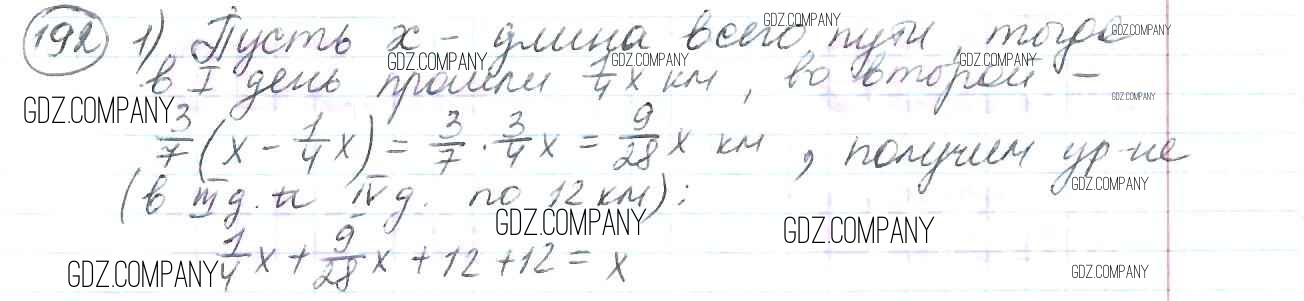 192 1) Пусть x - длина всего пути, тогда
в I день прошли 1/4 x км, во второй -
3/7 (x - 1/4 x) = 3/7 · 3/4 x = 9/28 x км, получим ур-ие
(в III д. и IV д. по 12 км):
1/4 x + 9/28 x + 12 + 12 = x
GDZ.COMPANY
GDZ.COMPANY
GDZ.COMPANY
GDZ.COMPANY
GDZ.COMPANY
GDZ.COMPANY
GDZ.COMPANY
GDZ.COMPANY
GDZ.COMPANY
GDZ.COMPANY
GDZ.COMPANY
GDZ.COMPANY